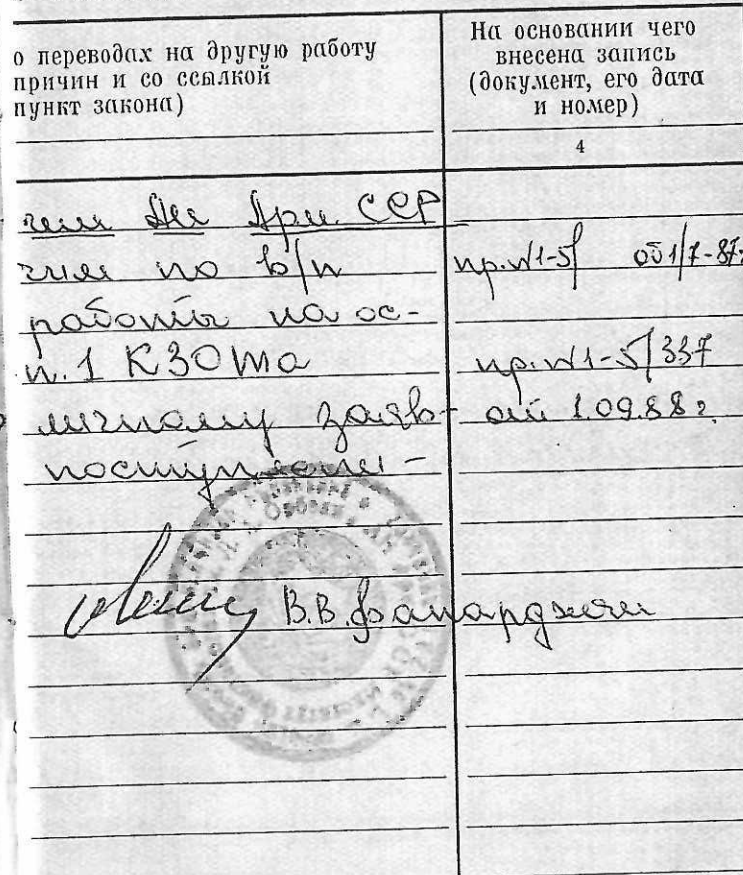 о переводах на другую работу
причин и со ссылкой
пункт закона)
На основании чего
внесена запись
(документ, его дата
и номер)
4
гии АН Арм. ССР
по в/н пр. №1-5/ от 1/7-87г
работы на ос-
п. 1 КЗОТа пр. №1-5/337
личному заяв- от 1.09.88г.
поступлени-
В.В. Фанарджян